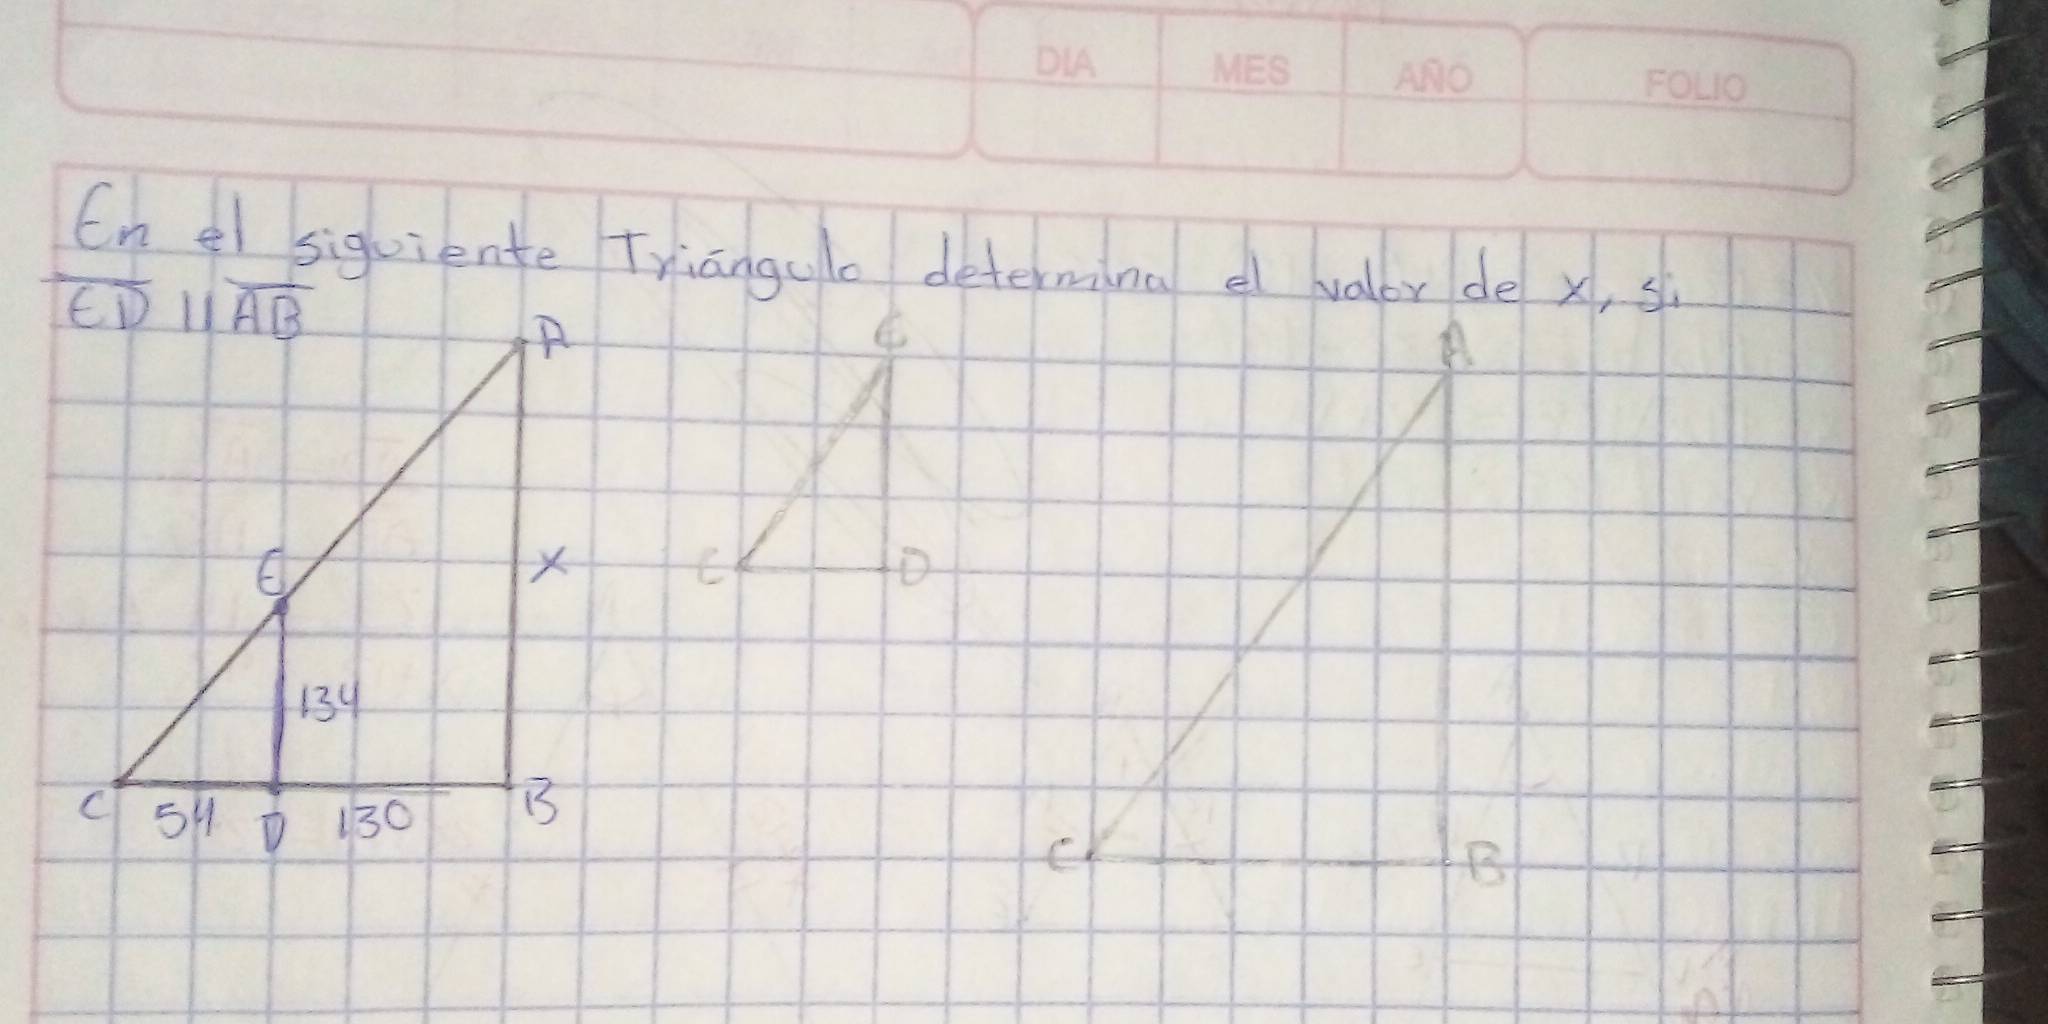 DIA MES AÑO FOLIO
En el siguiente Triángulo determina el valor de x, si
ED || AB
A
E
A
E
x
C
D
134
C
54
D
130
B
C
B